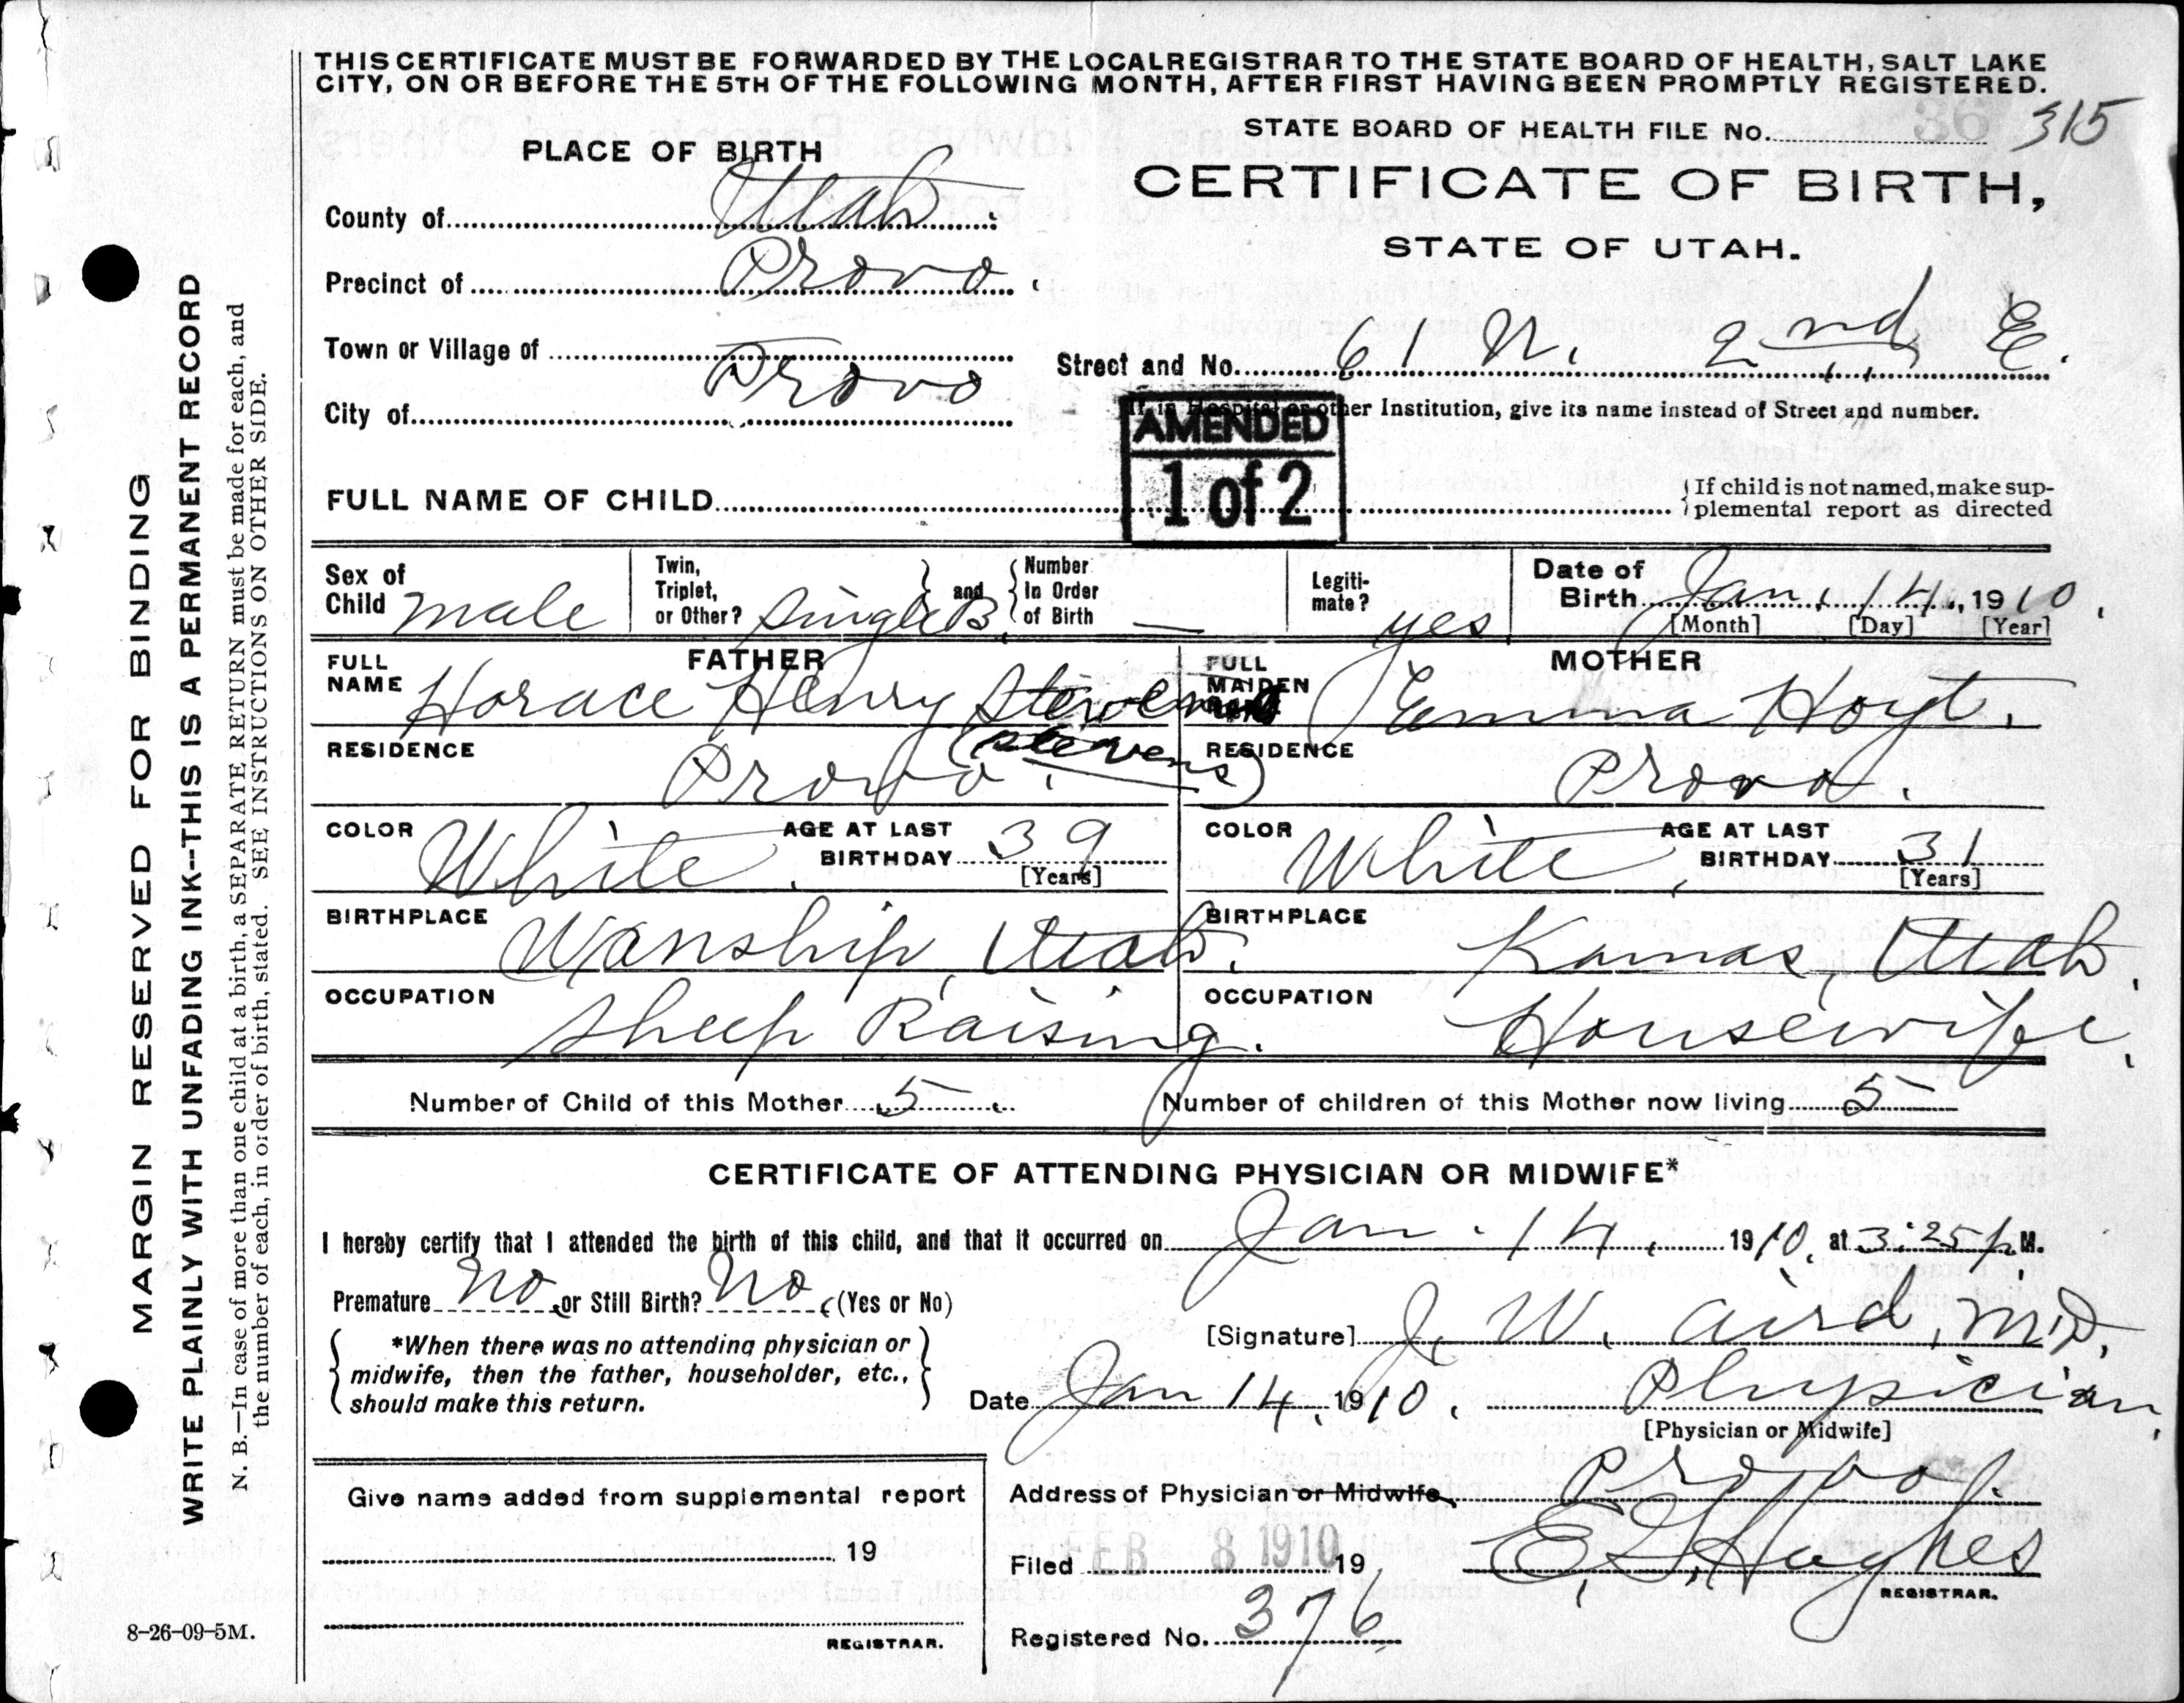 THIS CERTIFICATE MUST BE FORWARDED BY THE LOCAL REGISTRAR TO THE STATE BOARD OF HEALTH, SALT LAKE
CITY, ON OR BEFORE THE 5TH OF THE FOLLOWING MONTH, AFTER FIRST HAVING BEEN PROMPTLY REGISTERED.
STATE BOARD OF HEALTH FILE No. 36 315
PLACE OF BIRTH
CERTIFICATE OF BIRTH,
STATE OF UTAH.
County of Utah
Precinct of Provo
Town or Village of
Street and No. 61 N. 2nd E.
City of Provo
If in Hospital or other Institution, give its name instead of Street and number.
AMENDED
1 of 2
FULL NAME OF CHILD
If child is not named, make sup-
plemental report as directed
Sex of Child male
Twin, Triplet, or Other? Single B. and Number In Order of Birth —
Legiti-mate? yes
Date of Birth Jan. 14, 1910.
[Month] [Day] [Year]
FATHER
FULL NAME Horace Henry Stevens
(Stevens)
RESIDENCE Provo.
COLOR White. AGE AT LAST BIRTHDAY 39
[Years]
BIRTHPLACE Wanship, Utah.
OCCUPATION Sheep Raising.
MOTHER
FULL MAIDEN NAME Emma Hoyt.
RESIDENCE Provo.
COLOR White, AGE AT LAST BIRTHDAY 31
[Years]
BIRTHPLACE Kamas, Utah.
OCCUPATION Housewife.
Number of Child of this Mother 5
Number of children of this Mother now living 5
CERTIFICATE OF ATTENDING PHYSICIAN OR MIDWIFE*
I hereby certify that I attended the birth of this child, and that it occurred on Jan. 14, 1910, at 3:25 p. M.
Premature No or Still Birth? No (Yes or No)
*When there was no attending physician or
midwife, then the father, householder, etc.,
should make this return.
[Signature] J. W. Aird, M.D.
Date Jan 14, 1910. Physician
[Physician or Midwife]
Give name added from supplemental report
19
REGISTRAR.
Address of Physician or Midwife Provo.
Filed FEB 8 1910 19 E. G. Hughes
REGISTRAR.
Registered No. 376
8-26-09-5M.
MARGIN RESERVED FOR BINDING
WRITE PLAINLY WITH UNFADING INK--THIS IS A PERMANENT RECORD
N. B.—In case of more than one child at a birth, a SEPARATE RETURN must be made for each, and
the number of each, in order of birth, stated. SEE INSTRUCTIONS ON OTHER SIDE.